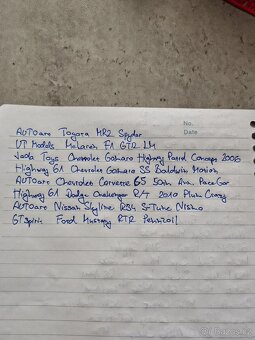 No.
Date
AUTOart Toyota MR2 Spyder
UT Models McLaren F1 GTR LM
Jada Toys Chevrolet Camaro Highway Patrol Concept 2006
Highway 61 Chevrolet Camaro SS Baldwin Motion
AUTOart Chevrolet Corvette C5 50th Ann. Pace Car
Highway 61 Dodge Challenger R/T 2010 Plum Crazy
AUTOart Nissan Skyline R34 S-Tune Nismo
GTSpirit Ford Mustang RTR Pennzoil